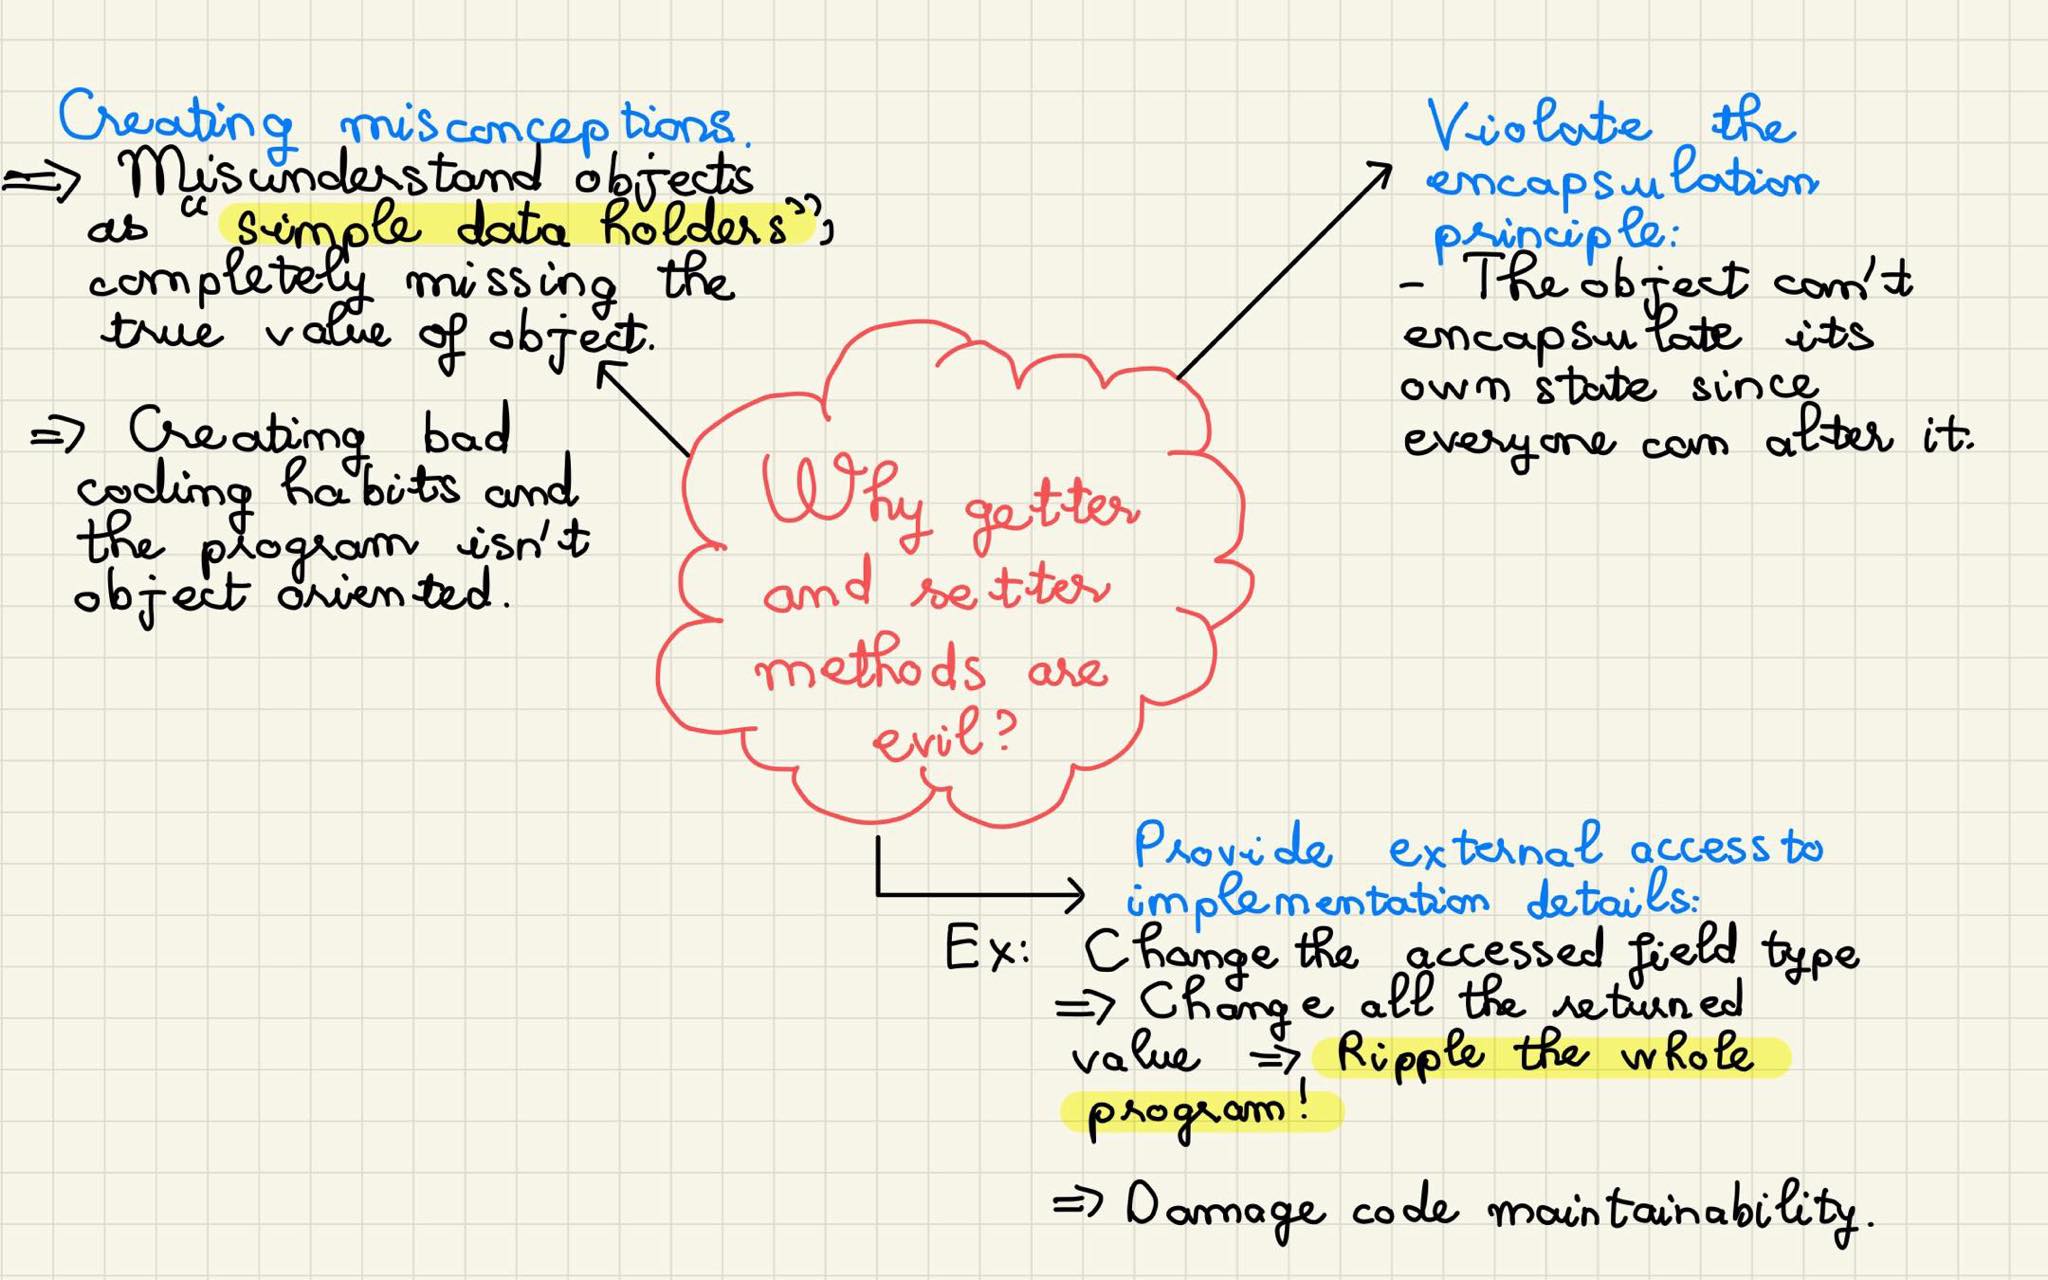 Creating misconceptions.
=> Misunderstand objects
as "simple data holders",
completely missing the
true value of object.
=> Creating bad
coding habits and
the program isn't
object oriented.
Why getter
and setter
methods are
evil?
Violate the
encapsulation
principle:
- The object can't
encapsulate its
own state since
everyone can alter it.
Provide external access to
implementation details:
Ex: Change the accessed field type
=> Change all the returned
value => Ripple the whole
program!
=> Damage code maintainability.